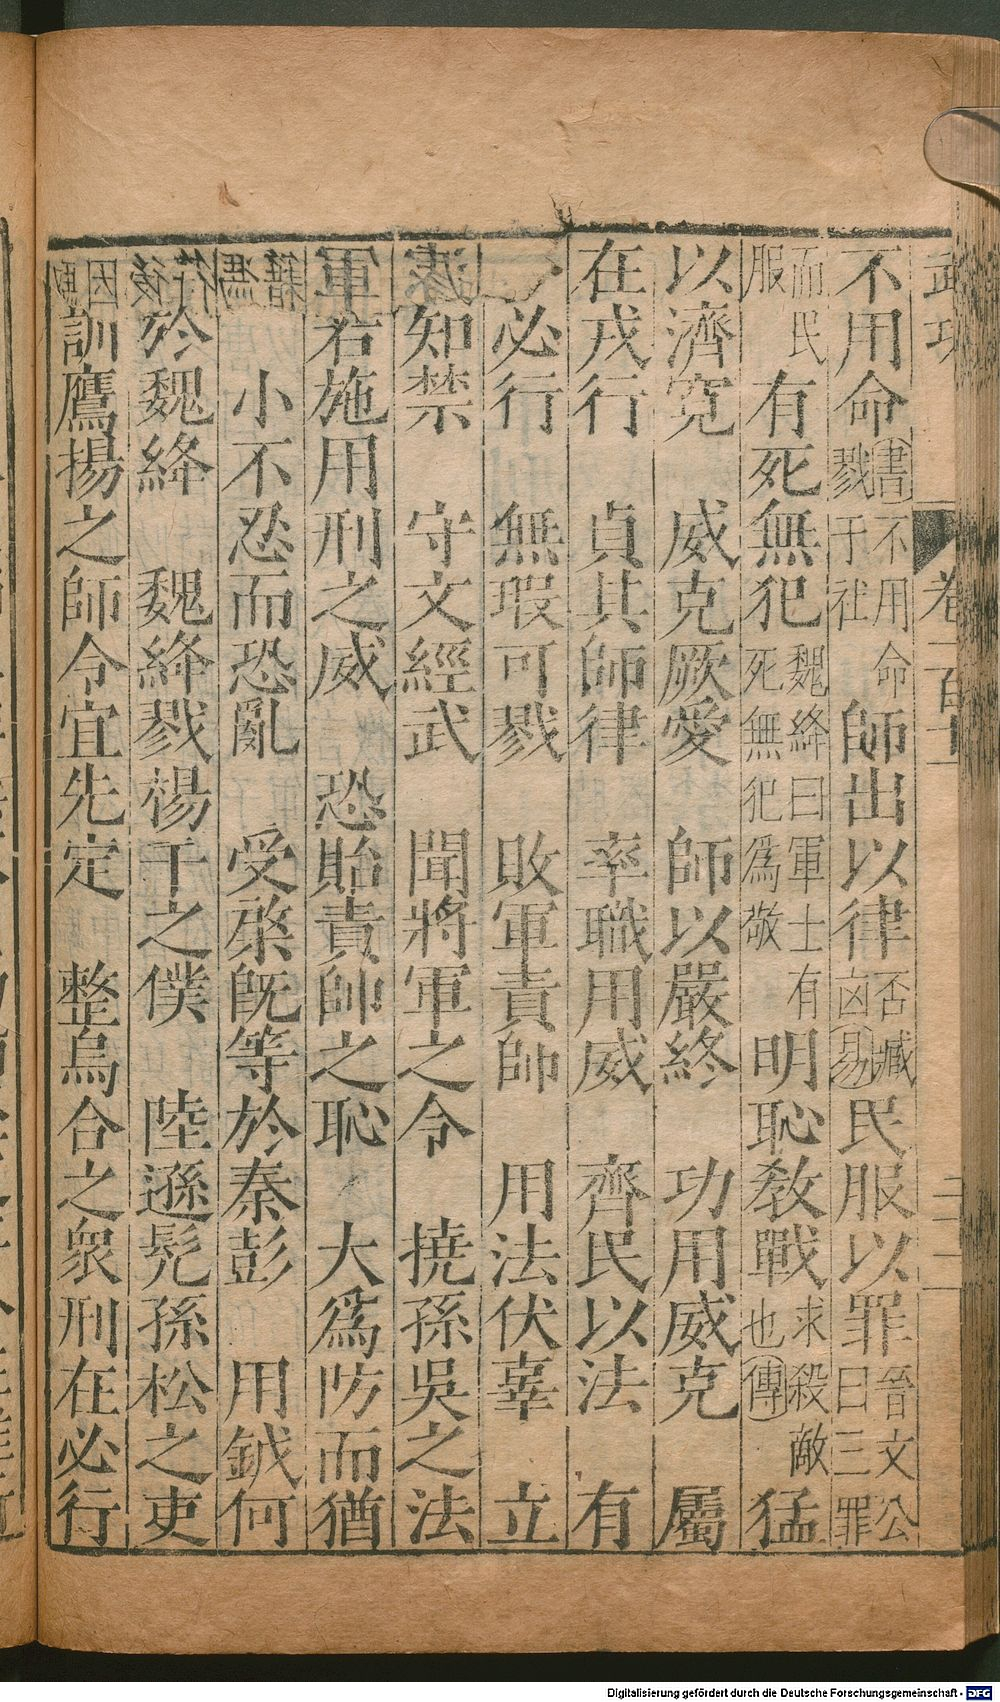 武功 卷二百十 二十二
不用命書不用命戮于社 師出以律否臧凶易 民服以罪晉文公曰三罪
而民服 有死無犯魏絳曰軍士有死無犯爲敬 明恥敎戰求殺敵也傳 猛
以濟寬 威克厥愛 師以嚴終 功用威克 屬
在戎行 貞其師律 率職用威 齊民以法 有
必行 無瑕可戮 敗軍責帥 用法伏辜 立
知禁 守文經武 聞將軍之令 撓孫吳之法
軍右施用刑之威 恐貽責帥之恥 大爲防而猶
小不忍而恐亂 受棨旣等於秦彭 用鉞何
於魏絳 魏絳戮楊干之僕 陸遜髡孫松之吏
訓鷹揚之師令宜先定 整烏合之衆刑在必行
Digitalisierung gefördert durch die Deutsche Forschungsgemeinschaft - DFG